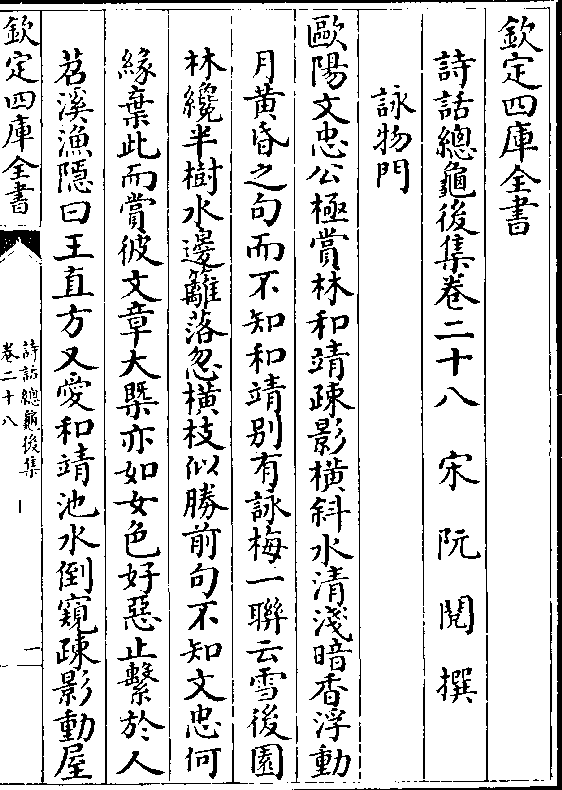 欽定四庫全書
詩話總龜後集卷二十八　宋　阮　閱　撰
詠物門
歐陽文忠公極賞林和靖疎影橫斜水清淺暗香浮動
月黃昏之句而不知和靖別有詠梅一聯云雪後園
林纔半樹水邊籬落忽橫枝似勝前句不知文忠何
緣棄此而賞彼文章大槩亦如女色好惡止繫於人
苕溪漁隱曰王直方又愛和靖池水倒窺疎影動屋
欽定四庫全書
詩話總龜後集
卷二十八
一